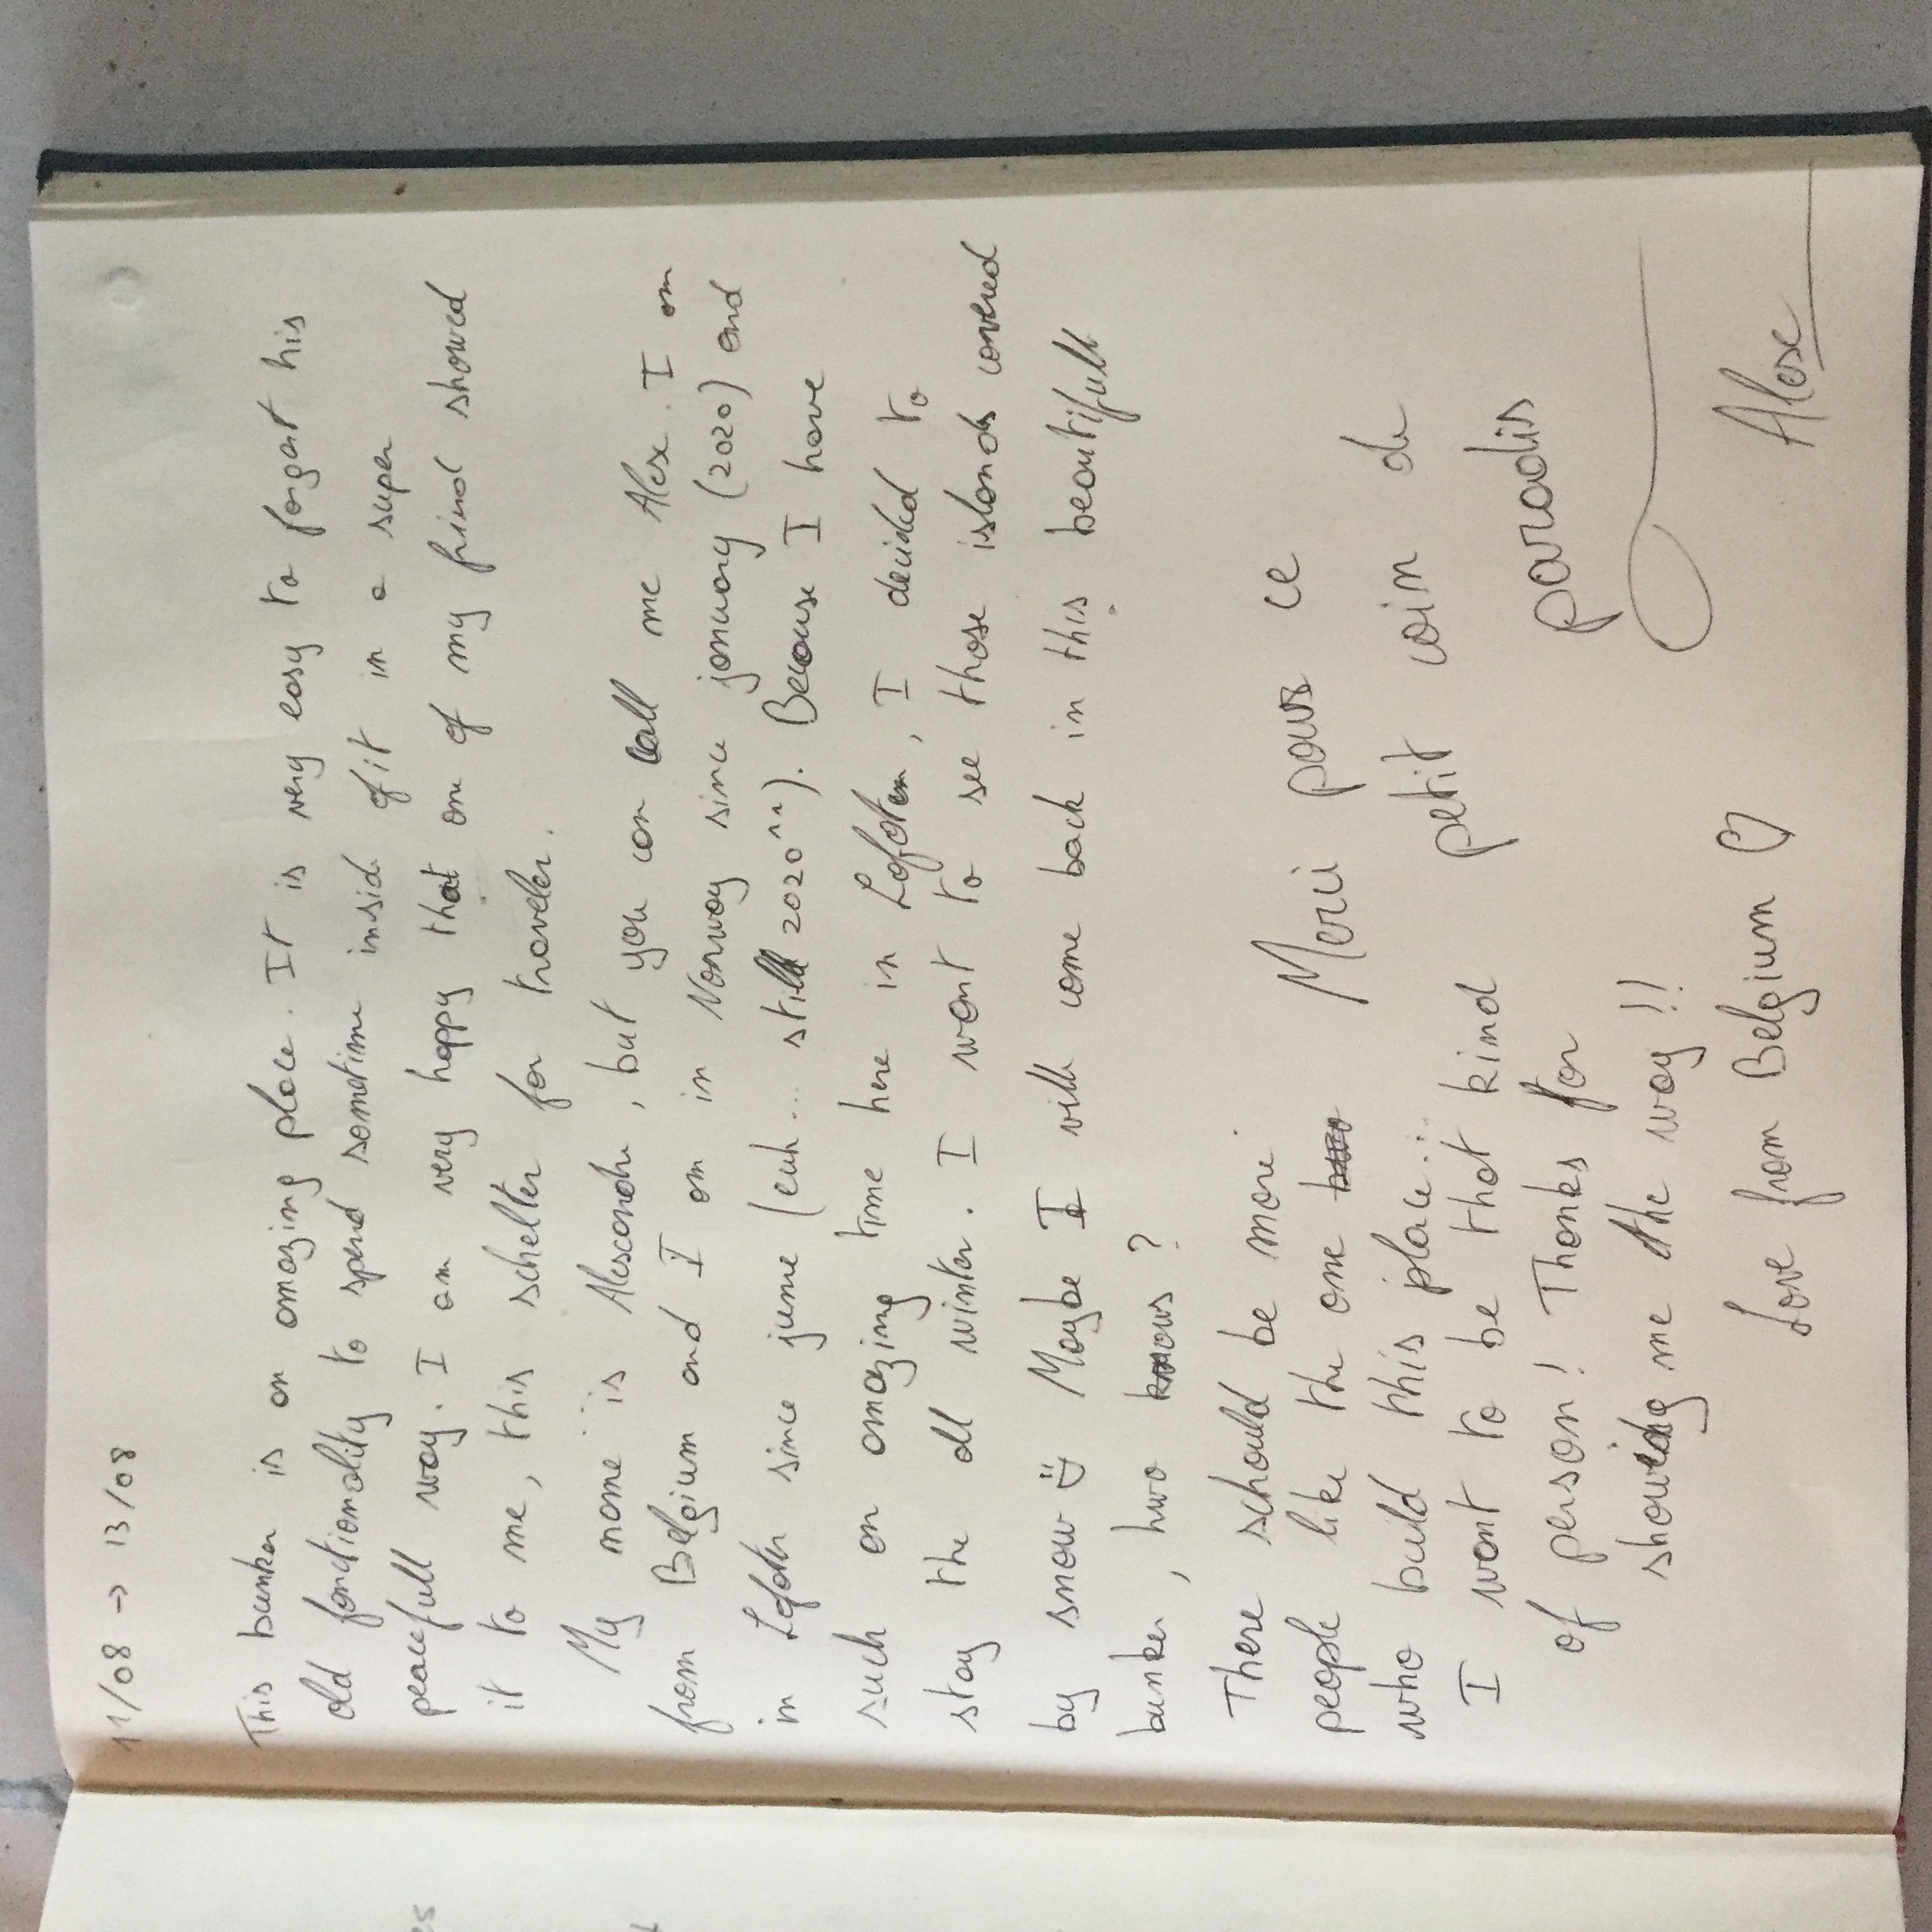 11/08 → 13/08
This bunker is an amazing place. It is very easy to forget his
old fonctionnality to spend sometime insid of it in a super
peacefull way. I am very happy that one of my friend showed
it to me, this schelter for traveler.
My name is Alexandre, but you can call me Alex. I am
from Belgium and I am in Norway since january (2020) and
in Lofoten since june (euh... still 2020^^). Because I have
such an amazing time here in Lofoten, I decided to
stay the all winter. I want to see those islands covered
by snow :) Maybe I will come back in this beautifull
bunker, hwo knows?
There schould be more
people like the one
who build this place...
I want to be that kind
of person! Thanks for
showing me the way!!
Love from Belgium ♡
Merci pour ce
petit coin de
paradis
Alex